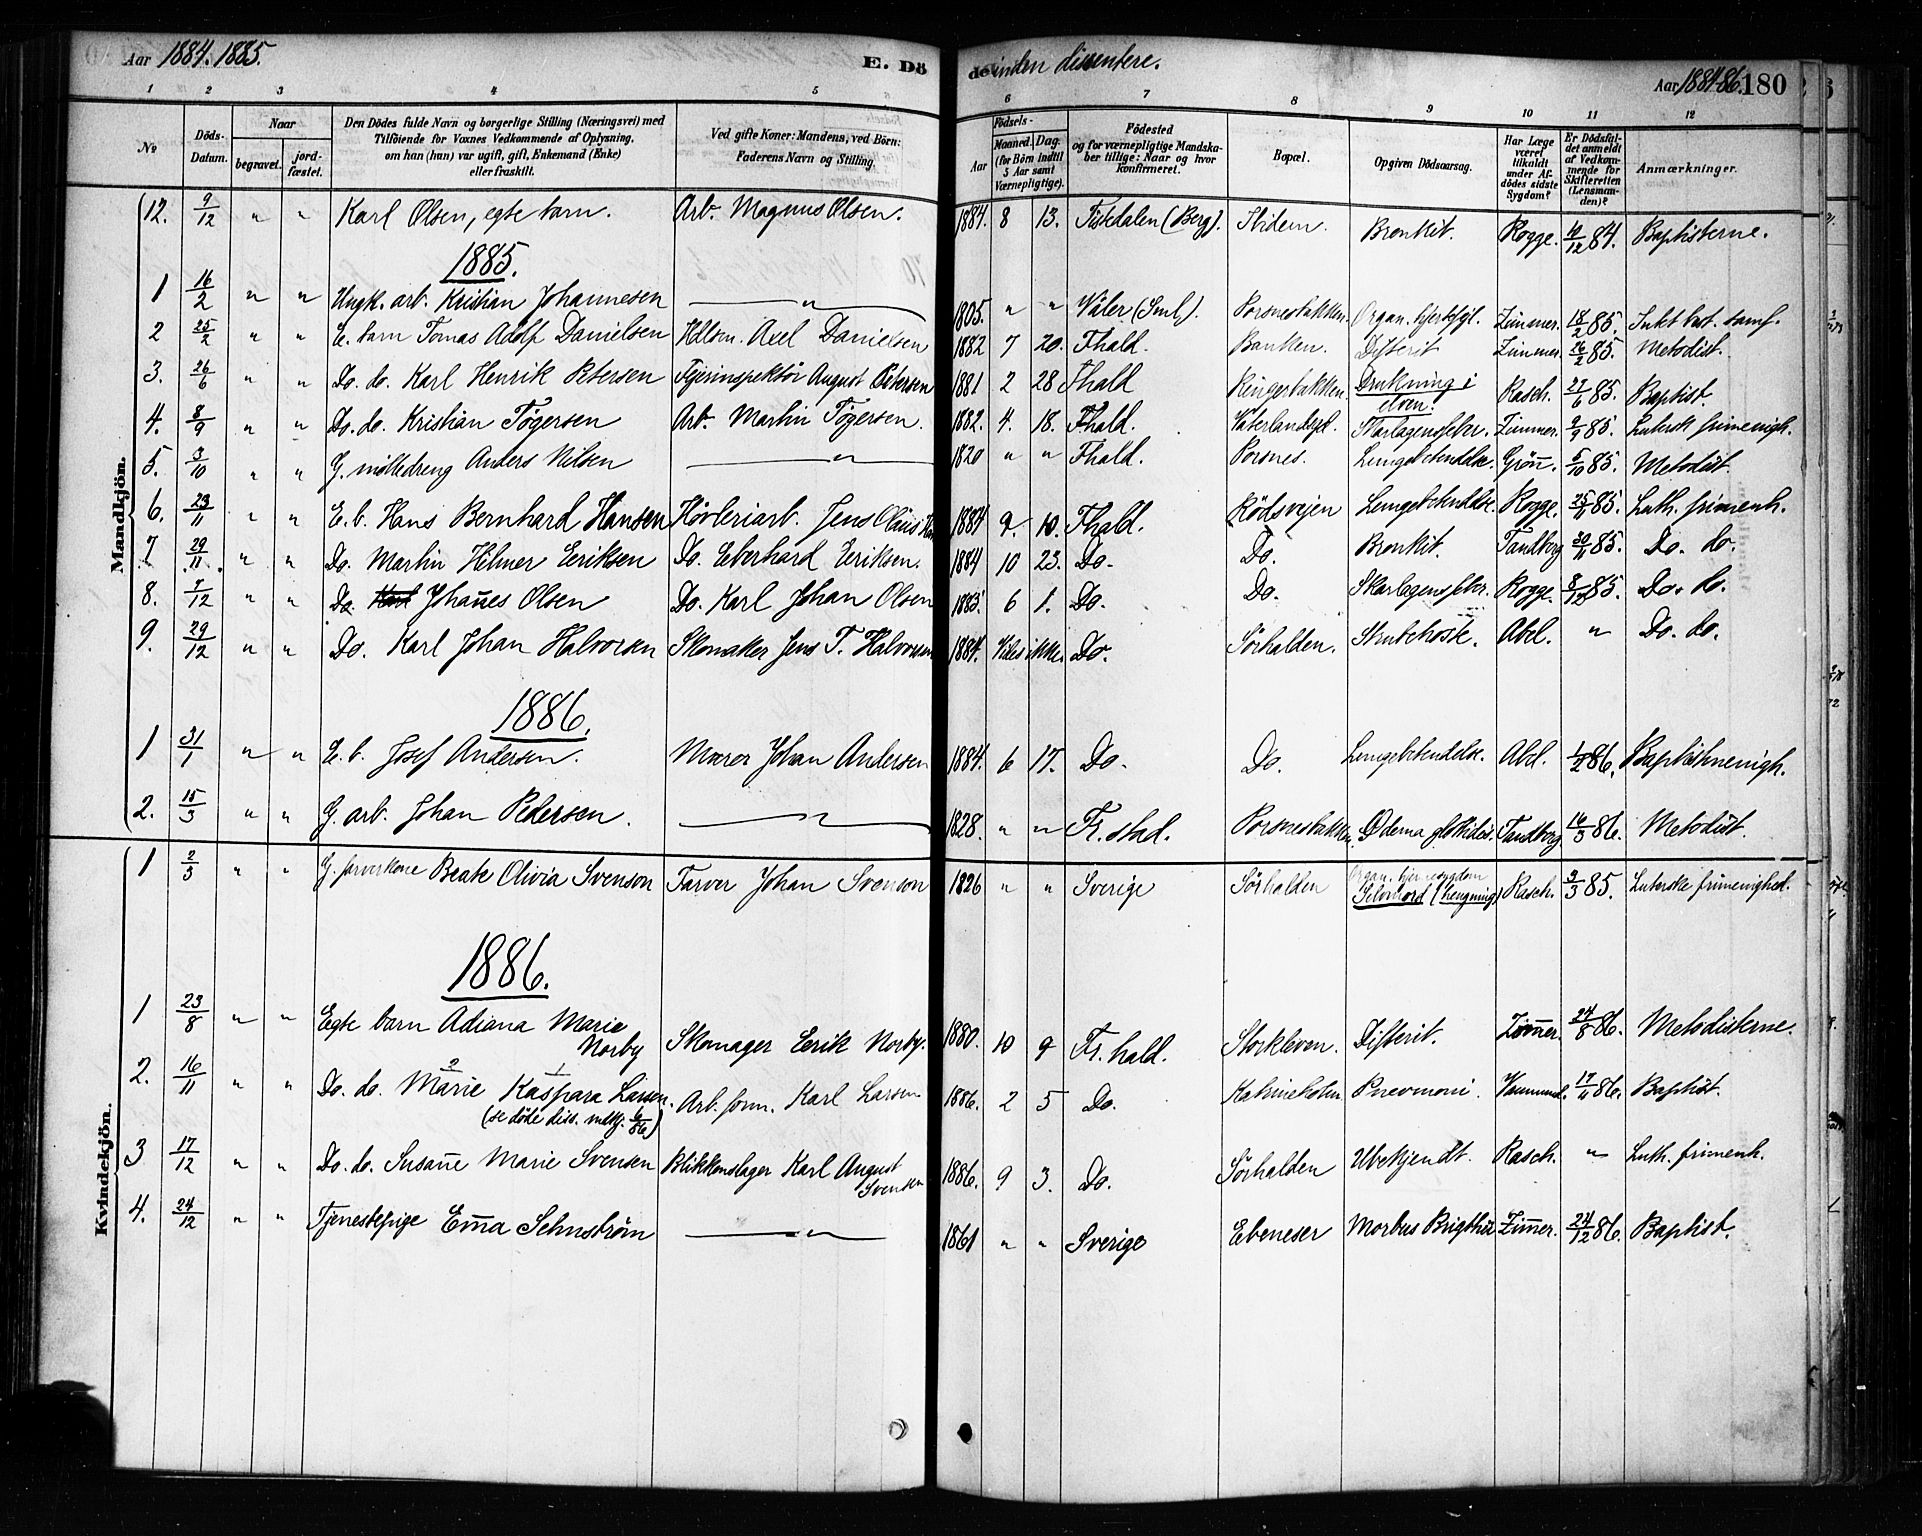 Aar 1884. 1885. E. Dö
de inden dissentere. Aar 1884-86. 180
1 2 3 4 5 6 7 8 9 10 11 12
№ Döds-Datum. Naar begravet. jord-fæstet. Den Dödes fulde Navn og borgerlige Stilling (Næringsvei) med Tilföiende for Voxnes Vedkommende af Oplysning, om han (hun) var ugift, gift, Enkemand (Enke) eller fraskilt. Ved gifte Koner: Mandens, ved Börn: Faderens Navn og Stilling. Födsels- Aar Maaned. Dag. (for Börn indtil 5 Aar samt Værnepligtige). Födested og for værnepligtige Mandskaber tillige: Naar og hvor Konfirmeret. Bopæl. Opgiven Dödsaarsag. Har Læge været tilkaldt under Afdödes sidste Sygdom? Er Dödsfaldet anmeldt af Vedkommende for Skifteretten (Lensmanden)? Anmærkninger.
Mandkjön.
12. 9/12 " " Karl Olsen, egte barn. Arb. Magnus Olsen. 1884. 8 13. Tistedalen (Berg). Ibidem. Bronkit. Rogge. 10/12 84. Baptisterne.
1885.
1 16/2 " " Ungk. arb. Kristian Johannesen " 1805. " " Våler (Sml). Porsnesbakken. Organ. hjertefejl. Zimmer. 18/2 85.
2 25/2 " " E. barn Tomas Adolf Danielsen Axel Danielsen 1882 7 20. Fhald. Banken. Difterit Zimmer. 26/2 85. Metodist.
3. 26/6 " " Do. do. Karl Henrik Petersen Fyrinspektör August Petersen 1881 2 28 Fhald Ringerbakken. Drukning i elven. Rasch. 27/6 85. Baptist.
4. 8/9 " " Do. do. Kristian Tögersen Arb. Martin Tögersen. 1882. 4. 18. Fhald. Skarlagensfeber. Zimmer. 9/9 85. Lutersk frimenigh.
5. 3/10 " " G. mölledreng Anders Nilsen " 1820 " " Fhald. Porsnes. Lungebetendelse. Grönn. 5/10 85. Metodist.
6. 23/11 " " E. b. Hans Bernhard Hansen Hövleriarb. Jens Olaus 1884 9. 10. Fhald. Rödsvejen Lungebetendelse. Rogge. 25/11 85. Luth. frimenh.
7. 29/11 " " Do. Martin Hilmer Eriksen Do. Eberhard Eriksen. 1884 10 23. Do. Do. Bronkit. Tandberg 30/11 85. Do. do.
8. 7/12 " " Do. Johañes Olsen Do. Karl Johan Olsen 1883 6 1. Do. Do. Skarlagensfeber. Rogge. 8/12 85. Do. do.
9. 29/12 " " Do. Karl Johan Halvorsen Skomaker Jens T. Halvorsen 1884. Vides ikke. Do. Sörhalden. Strubehoste. Abel. " Do. do.
1886.
1 31/1 " " E. b. Josef Andersen. Murer Johan Andersen 1884. 6 17. Do. Do. Lungebetendelse. Abel. 1/2 86. Baptistmenigh.
2. 15/3 " " G. arb. Johan Pedersen. " 1828. " " Fr. stad. Porsnesbakken Ödema glottidis. Tandberg 16/3 86. Metodist.
Kvindekjön.
1 2/3 " " G. farverkone Beate Olivia Svenson Farver Johan Svenson 1826 " " Sverige Sörhalden Organ. hjernesygdom Selvmord (hengning) Rasch. 3/3 85. Luterske frimenighed.
1886.
1 23/8 " " Egte barn Adiana Marie Norby Skomager Erik Norby. 1880. 10 9 Fr. hald. Storkleven. Difterit. Zim̄er. 24/8 86. Metodisterne.
2. 16/11 " " Do. do. Marie Kaspara Larsen. (se döde diss. mdkj. 6/86) Arb. form. Karl Larsen 1886. 2 5 Do. Katrineholm Pnevmoni. 17/11 86. Baptist.
3 17/12 " " Do. do. Susañe Marie Svensen Blikkenslager Karl August Svensen 1886. 9 3. Do. Sörhalden Ubekjendt. Rasch. " Luth. frimenh.
4. 24/12 " " Tjenestepige Em̄a Sehnström " 1861 " " Sverige Ebeneser Morbus Brigthii Zim̄er. 24/12 86. Baptist.